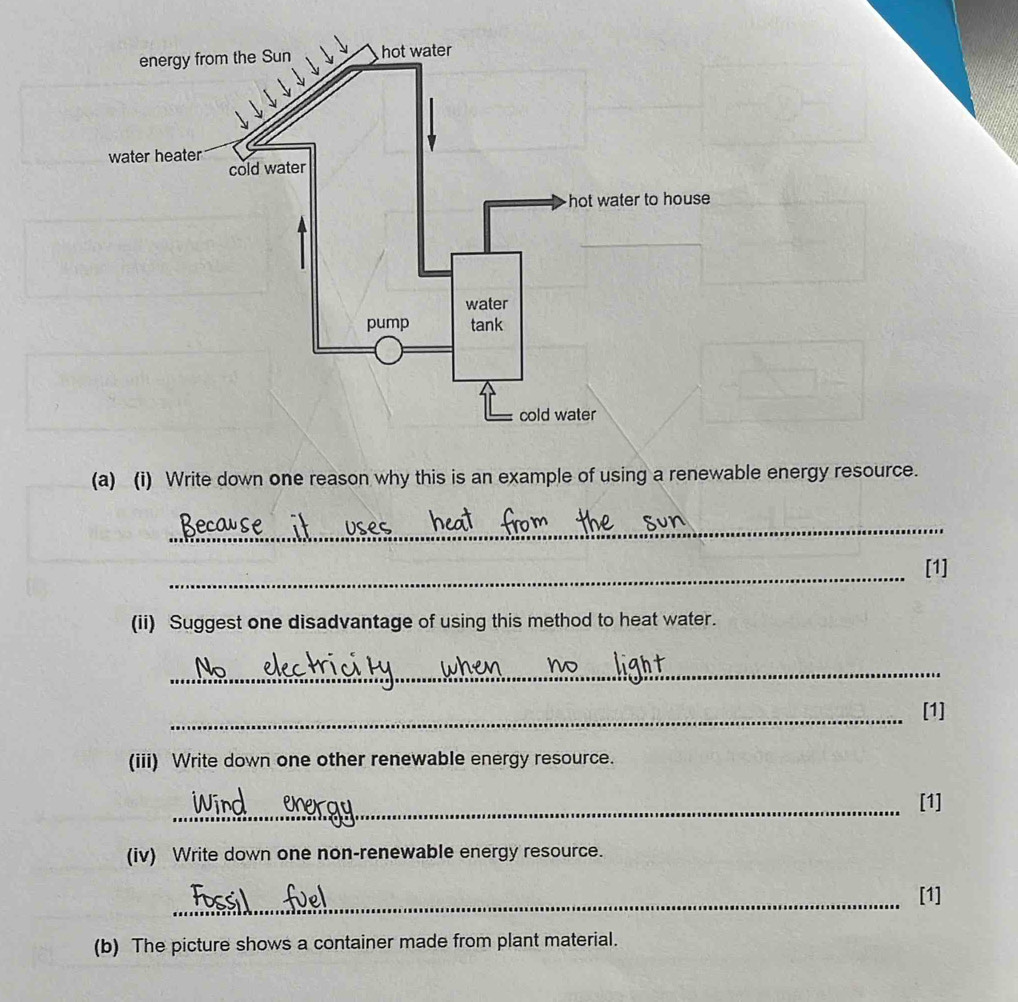 energy from the Sun
hot water
water heater
cold water
hot water to house
water
tank
pump
cold water
(a) (i) Write down one reason why this is an example of using a renewable energy resource.
Because it uses heat from the sun
[1]
(ii) Suggest one disadvantage of using this method to heat water.
No electricity when no light
[1]
(iii) Write down one other renewable energy resource.
Wind energy
[1]
(iv) Write down one non-renewable energy resource.
Fossil fuel
[1]
(b) The picture shows a container made from plant material.